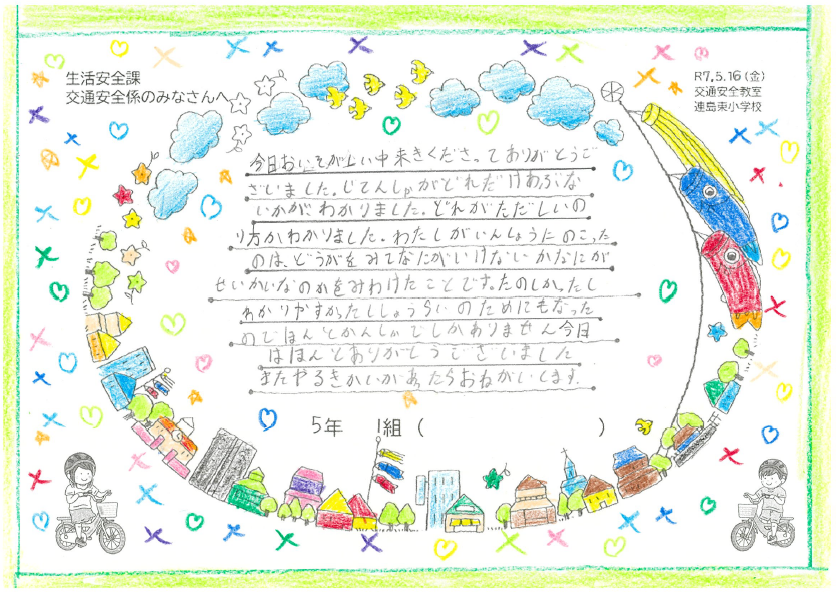 生活安全課
交通安全係のみなさんへ
R7.5.16(金)
交通安全教室
連島東小学校
今日おいそがしい中来きくださってありがとうご
ざいました。じてんしゃがどれだけあぶな
いかがわかりました。どれがただしいの
り方かわかりました。わたしがいんしょうにのこった
のは、どうがをみてなにがいけないかなにが
せいかいなのかをみわけたことです。たのしかったし
わかりやすかったししょうらいのためにもなった
のでほんとかんしゃでしかありません今日
はほんとありがとうございました
またやるきかいがあったらおねがいします。
5年 1組 ( )